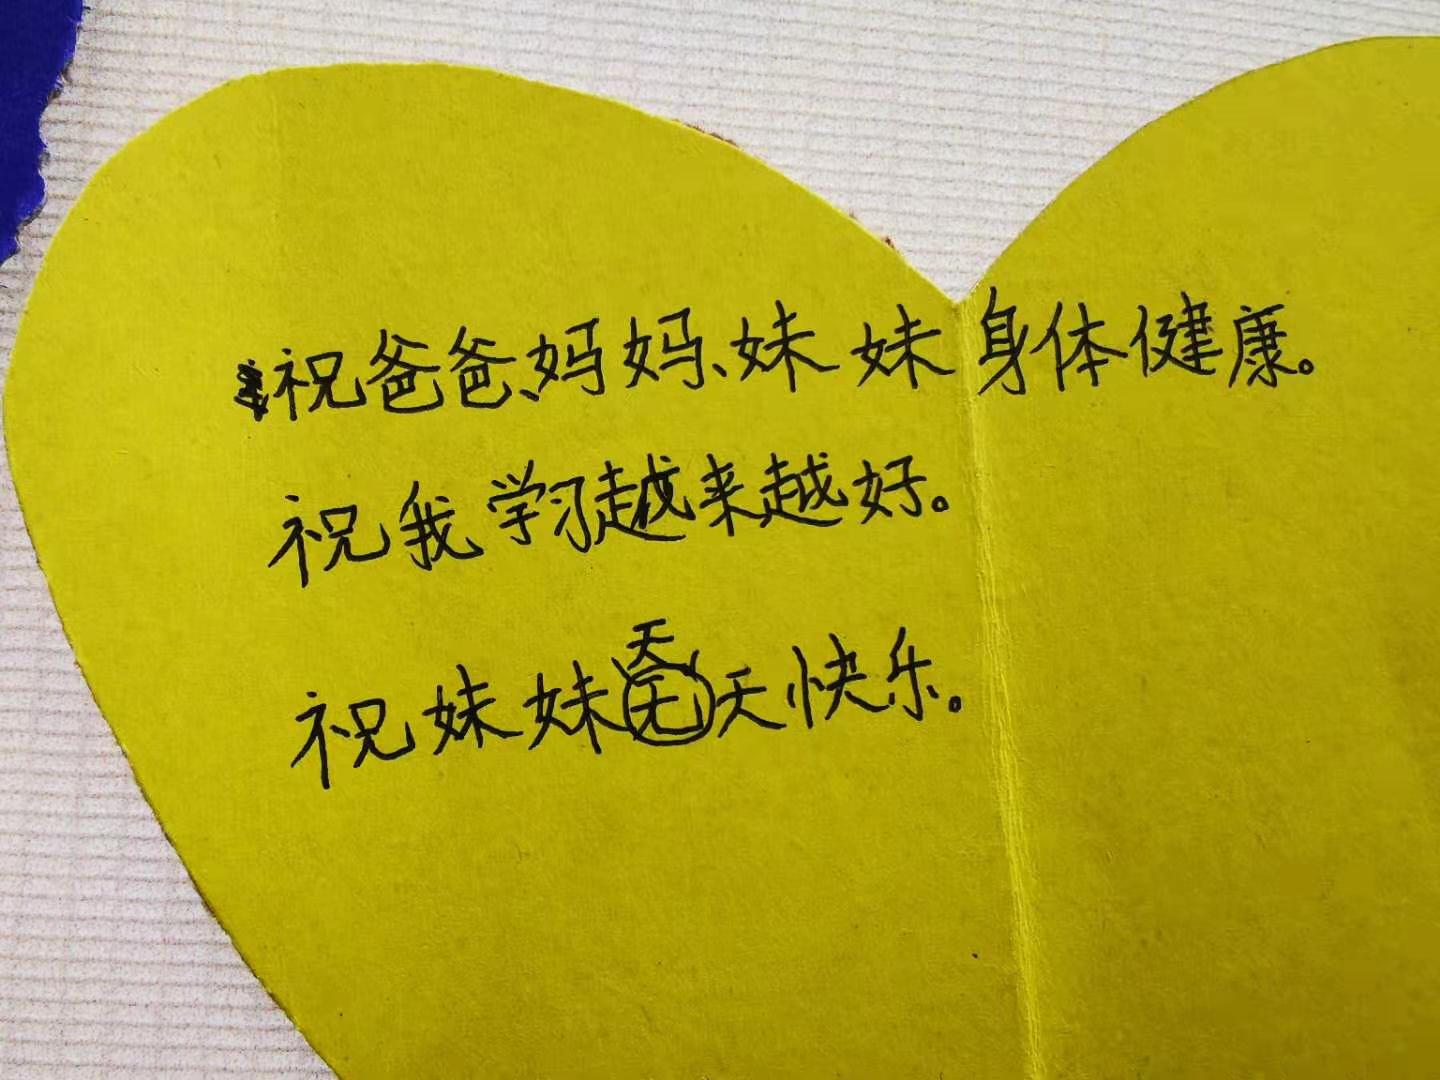 祝爸爸、妈妈、妹妹身体健康。
祝我学习越来越好。
祝妹妹天天快乐。